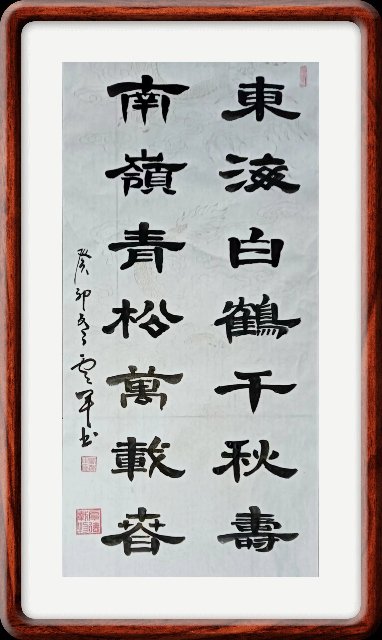 東海白鶴千秋壽
南嶺青松萬載春
癸卯春雲軍書